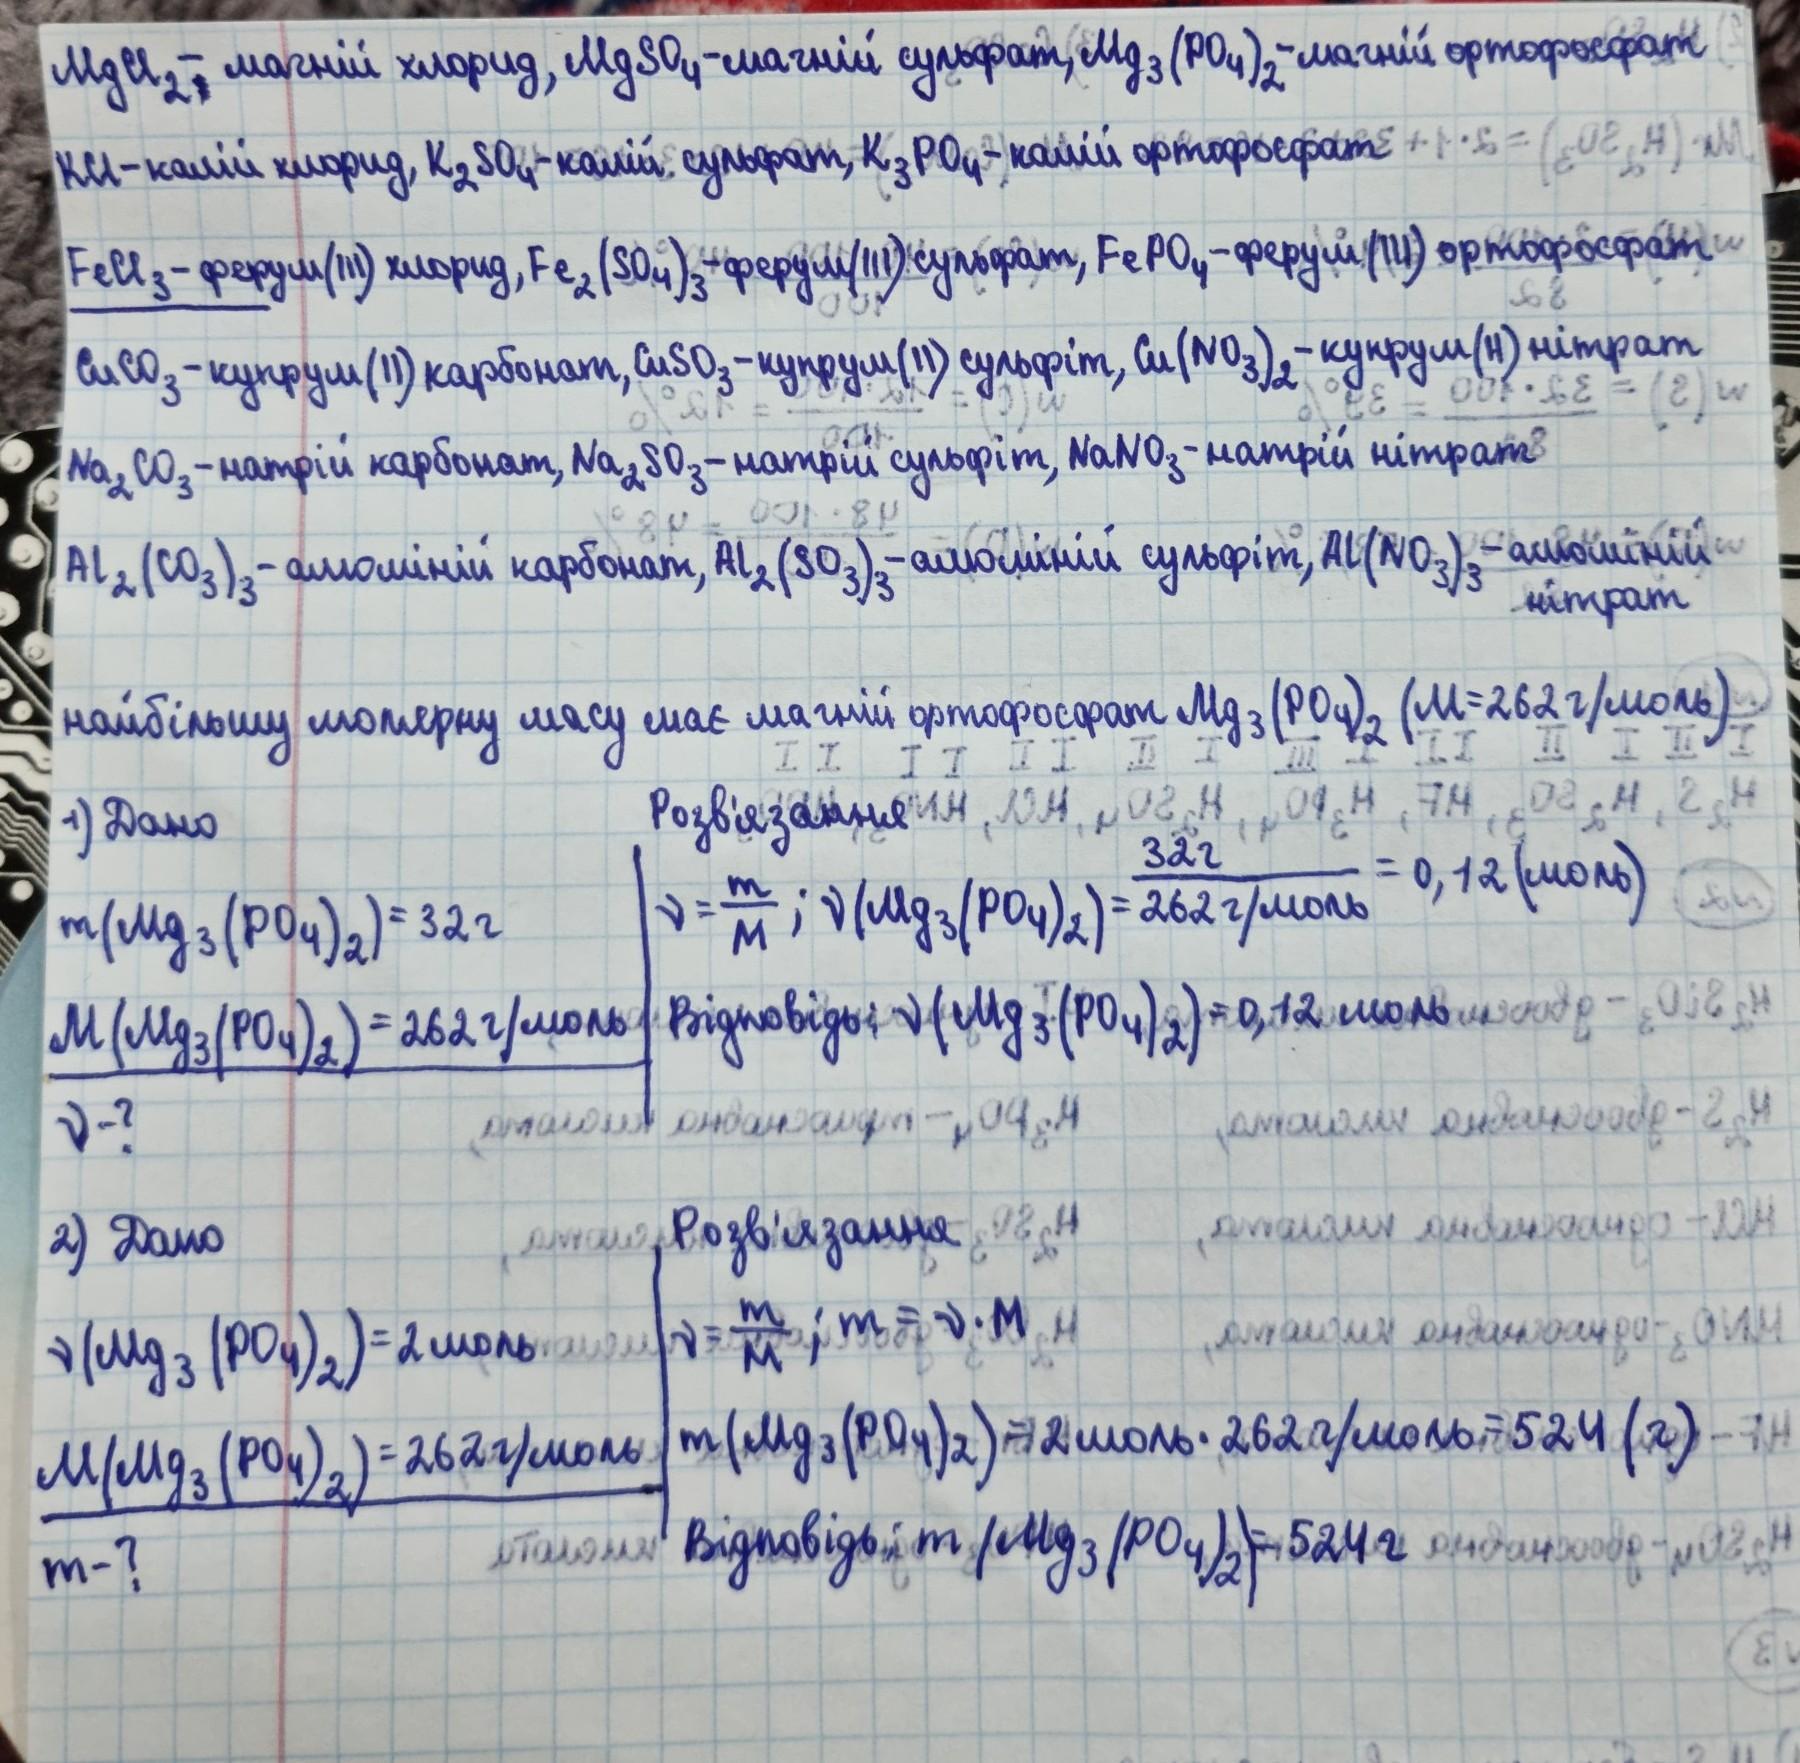 MgCl₂ - магній хлорид, MgSO₄ - магній сульфат, Mg₃(PO₄)₂ - магній ортофосфат
KCl - калій хлорид, K₂SO₄ - калій сульфат, K₃PO₄ - калій ортофосфат
FeCl₃ - ферум(III) хлорид, Fe₂(SO₄)₃ - ферум(III) сульфат, FePO₄ - ферум(III) ортофосфат
CuCO₃ - купрум(II) карбонат, CuSO₃ - купрум(II) сульфіт, Cu(NO₃)₂ - купрум(II) нітрат
Na₂CO₃ - натрій карбонат, Na₂SO₃ - натрій сульфіт, NaNO₃ - натрій нітрат
Al₂(CO₃)₃ - алюміній карбонат, Al₂(SO₃)₃ - алюміній сульфіт, Al(NO₃)₃ - алюміній
нітрат
найбільшу молярну масу має магній ортофосфат Mg₃(PO₄)₂ (M = 262 г/моль)
1) Дано
m(Mg₃(PO₄)₂) = 32 г
M(Mg₃(PO₄)₂) = 262 г/моль
ν - ?
Розв'язання
ν = m/M ; ν(Mg₃(PO₄)₂) = 32 г / 262 г/моль = 0,12 (моль)
Відповідь: ν(Mg₃(PO₄)₂) = 0,12 моль
2) Дано
ν(Mg₃(PO₄)₂) = 2 моль
M(Mg₃(PO₄)₂) = 262 г/моль
m - ?
Розв'язання
ν = m/M ; m = ν · M
m(Mg₃(PO₄)₂) = 2 моль · 262 г/моль = 524 (г)
Відповідь: m(Mg₃(PO₄)₂) = 524 г